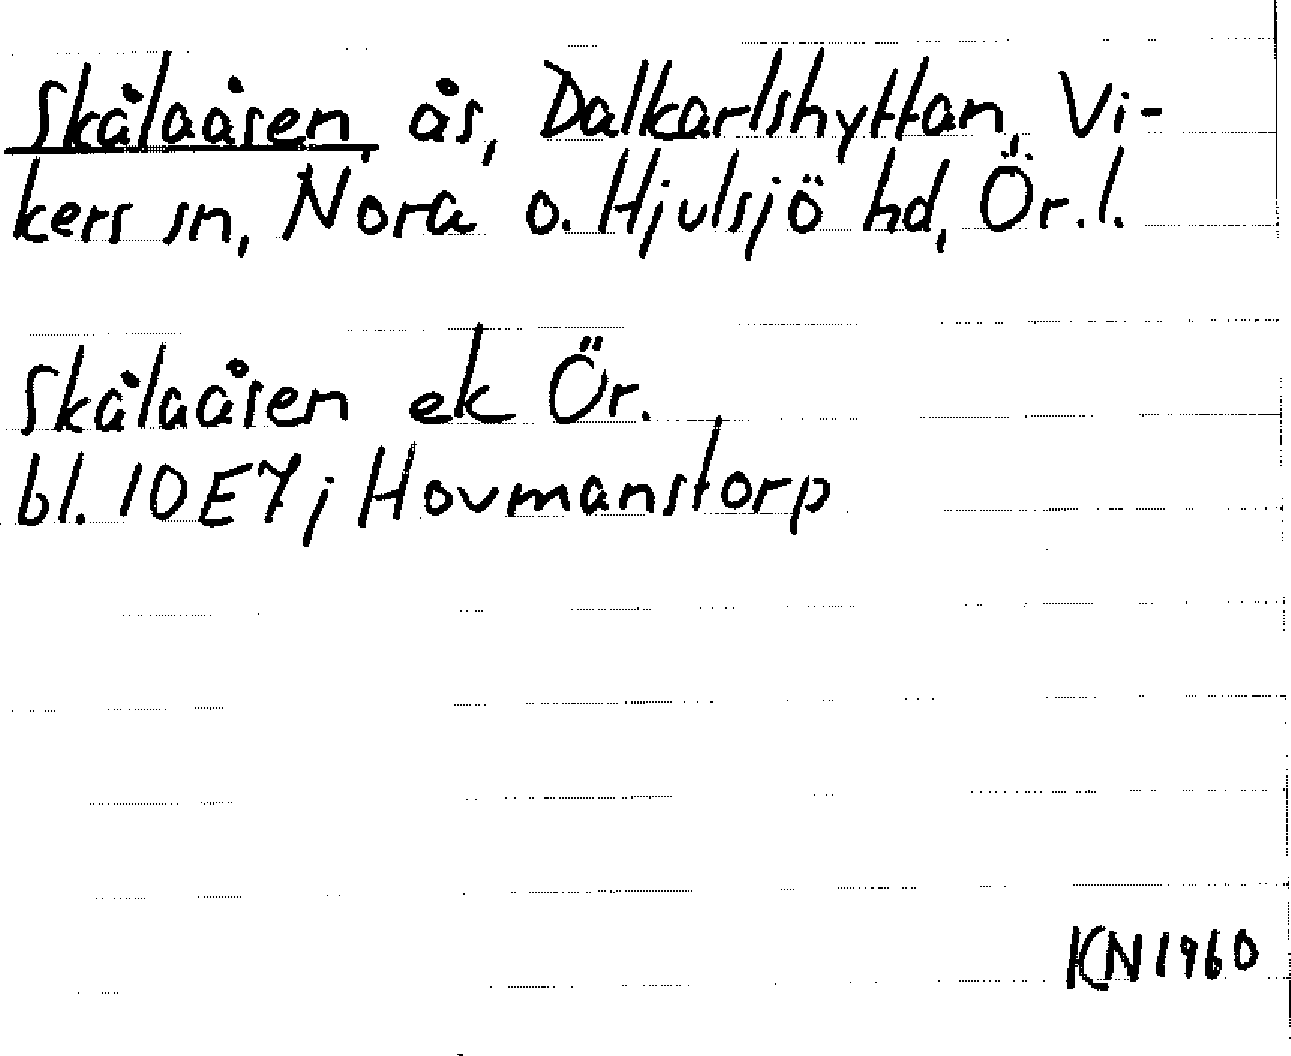 Skålaåsen, ås, Dalkarlshyttan, Vi-
kers sn, Nora o. Hjulsjö hd, Ör.l.
Skålaåsen ek Ör.
bl. 10E7j Hovmanstorp
KN1960